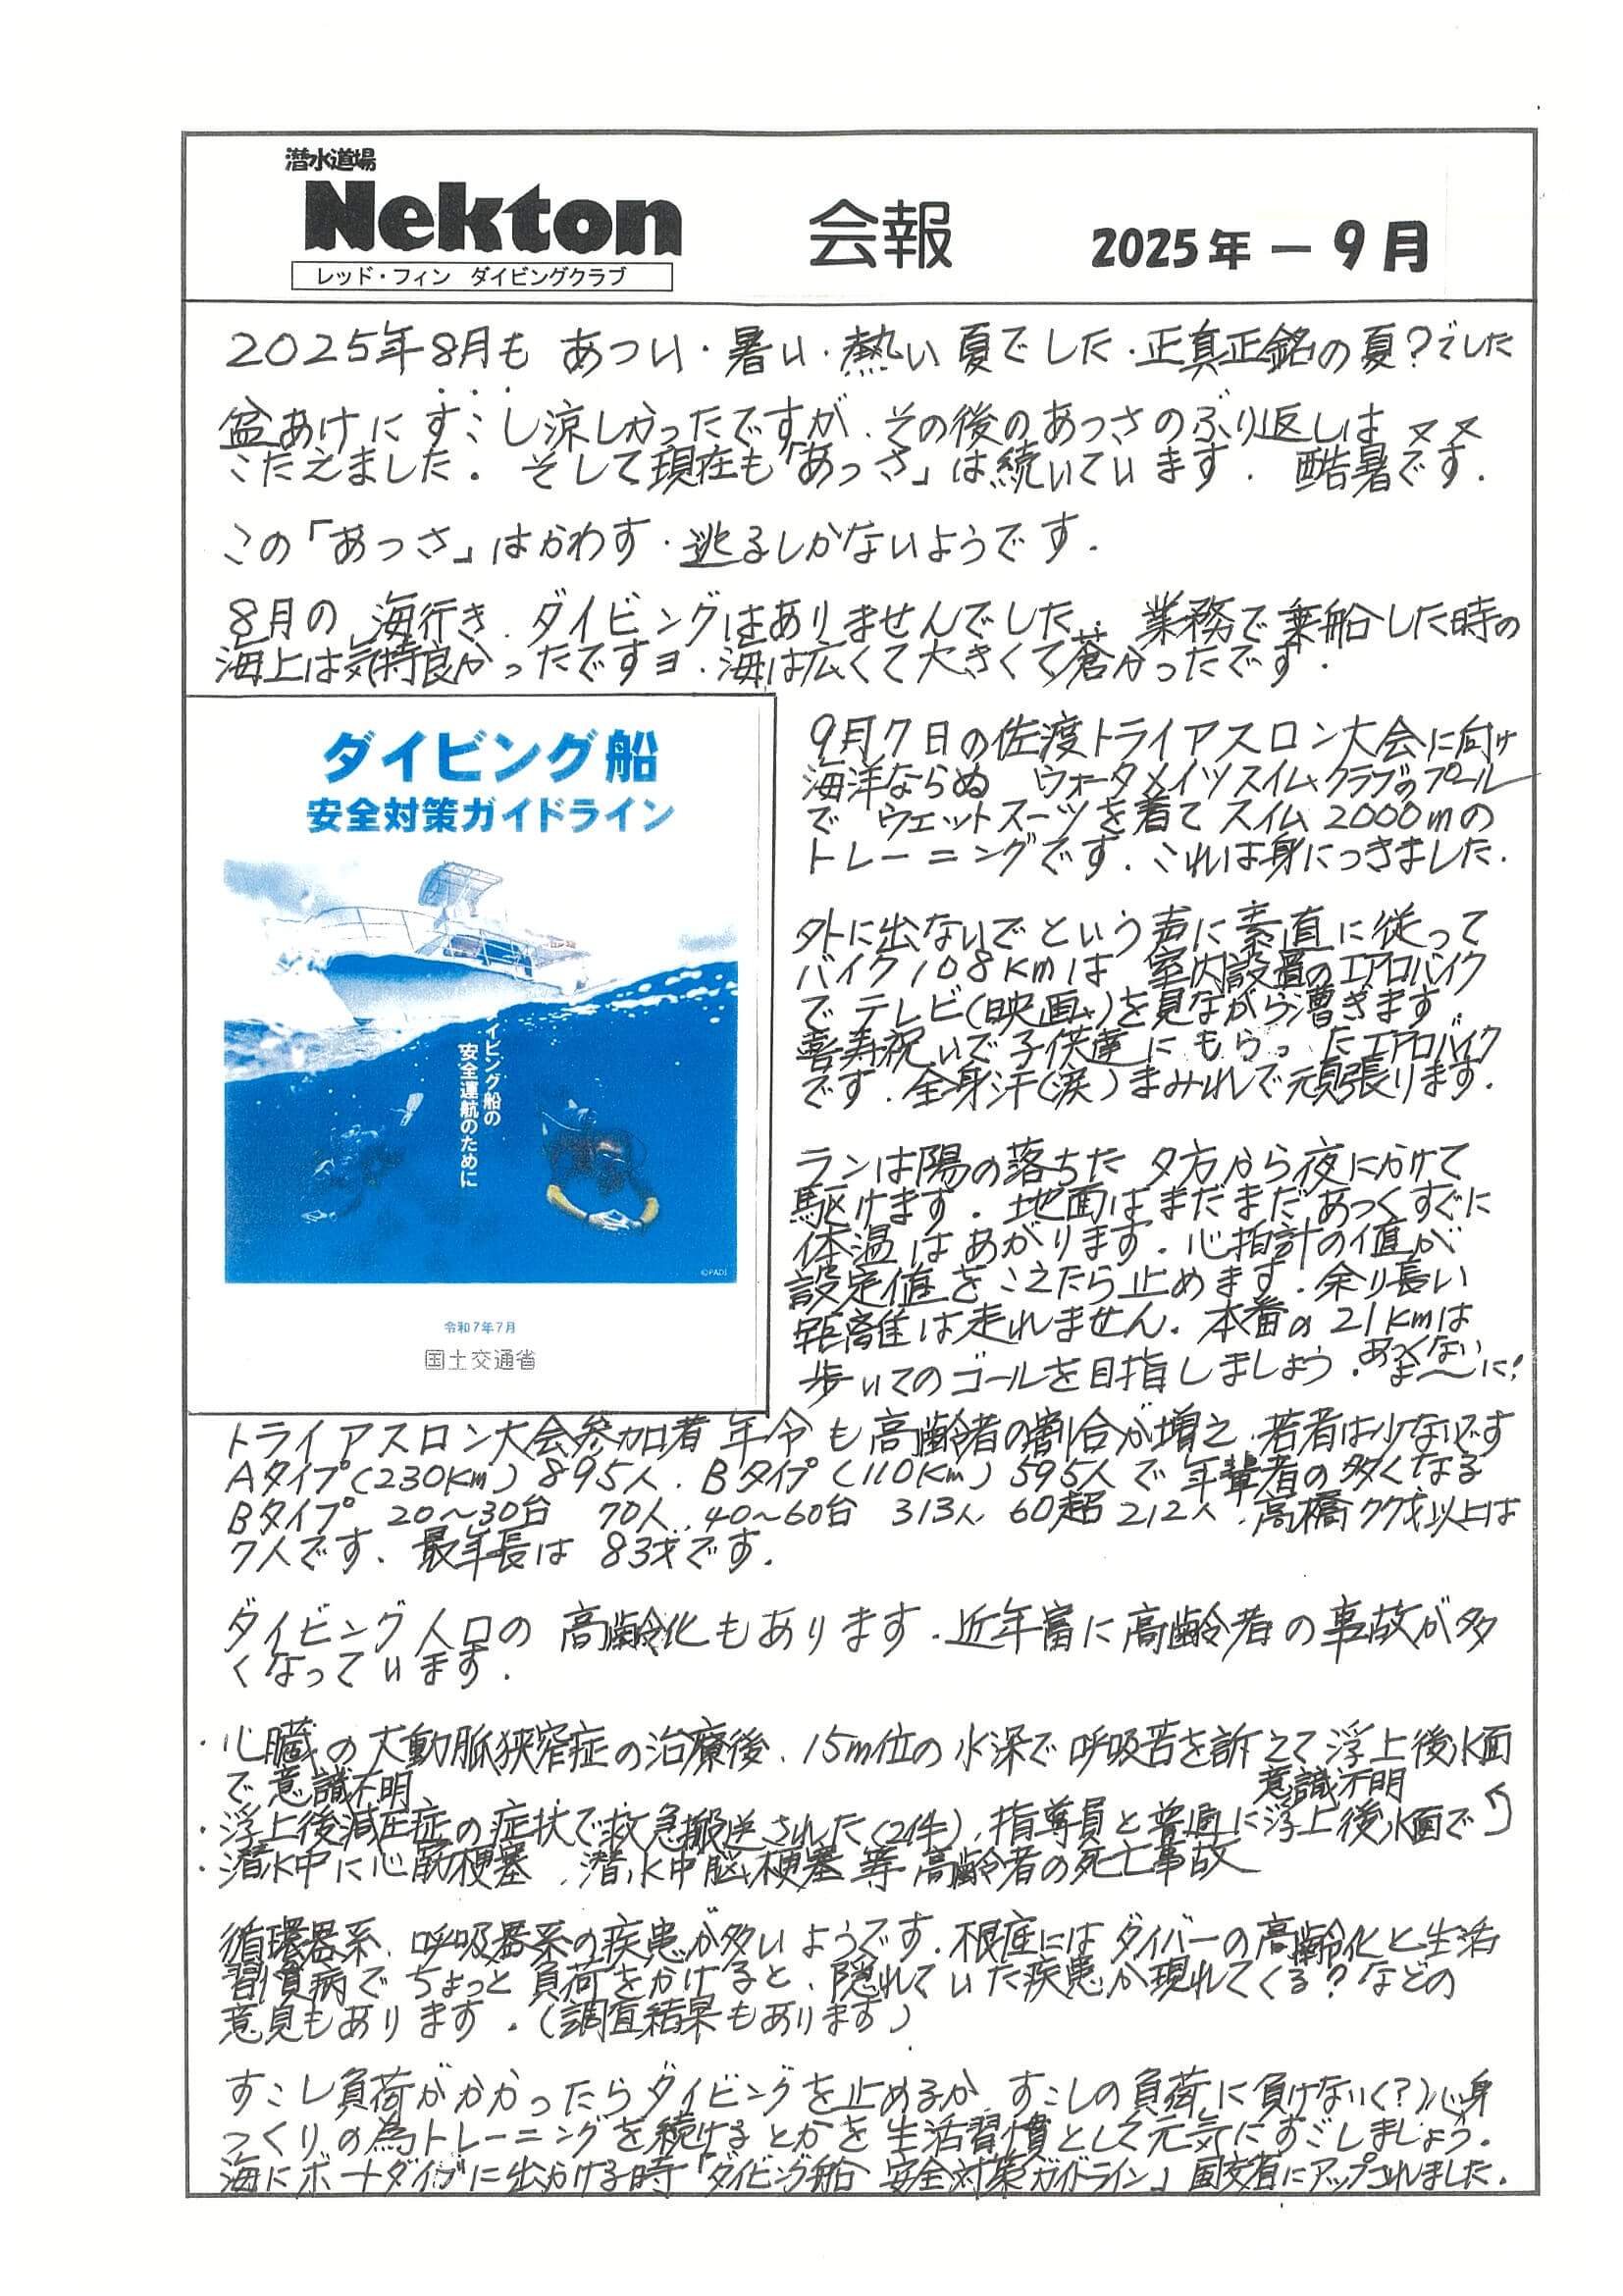 潜水道場
Nekton
レッド・フィン ダイビングクラブ
会報
2025年 ー 9月
2025年8月も あつい・暑い・熱い 夏でした・正真正銘の夏?でした
盆あけに すこし涼しかったですが、その後のあっさのぶり返しは 〃〃
こたえました。そして現在も「あっさ」は続いています. 酷暑です.
この「あっさ」はかわす・逃るしかないようです.
8月の 海行き、ダイビングはありませんでした. 業務で乗船した時の
海上は気持良かったですヨ.海は広くて大きくて蒼かったです.
ダイビング船
安全対策ガイドライン
イビング船の
安全運航のために
©PADI
令和7年7月
国土交通省
9月7日の佐渡トライアスロン大会に向け
海洋ならぬ ウォータメイツスイムクラブのプール
で ウェットスーツを着て スイム 2000mの
トレーニングです.これは身につきました.
外に出ないで という声に素直に従って
バイク108kmは 室内設置のエアロバイク
で テレビ(映画)を見ながら漕ぎます.
喜寿祝いで子供達にもらったエアロバイク
です.全身汗(涙)まみれで頑張ります.
ランは陽の落ちた 夕方から夜にかけて
駆けます. 地面はまだまだあっくすぐに
体温はあがります. 心拍計の値が
設定値をこえたら止めます.余り長い
距離は走れません. 本番の21kmは
歩いてのゴールを目指しましょう.あっくない
よ〜に!
トライアスロン大会参加者 年令 も高齢者の割合が増え 若者は少ないです
Aタイプ(230Km) 895人. Bタイプ (110Km) 595人で 年輩者の多くなる
Bタイプ 20〜30台 70人, 40〜60台 313人 60超 212人, 高橋77才以上は
7人です、最年長は 83才です.
ダイビング人口の 高齢化もあります.近年富に高齢者の事故が多
くなっています.
・心臓の大動脈狭窄症の治療後、15m位の水深で呼吸苦を訴えて浮上後水面
で意識不明
意識不明
・浮上後減圧症の症状で救急搬送された(2件)、指導員と普通に浮上後水面で
・潜水中に心筋梗塞、潜水中脳梗塞等 高齢者の死亡事故
循環器系、呼吸器系の疾患が多いようです.根底にはダイバーの高齢化と生活
習慣病でちょっと負荷をかけると、隠れていた疾患が現れてくる?などの
意見もあります.(調査結果もあります)
すこし負荷がかかったらダイビングを止めるか、すこしの負荷に負けない(?)心身
つくりの為トレーニングを続けるとかを生活習慣として元気にすごしましょう.
海にボートダイブに出かける時「ダイビング船 安全対策ガイドライン」国交省にアップされました.